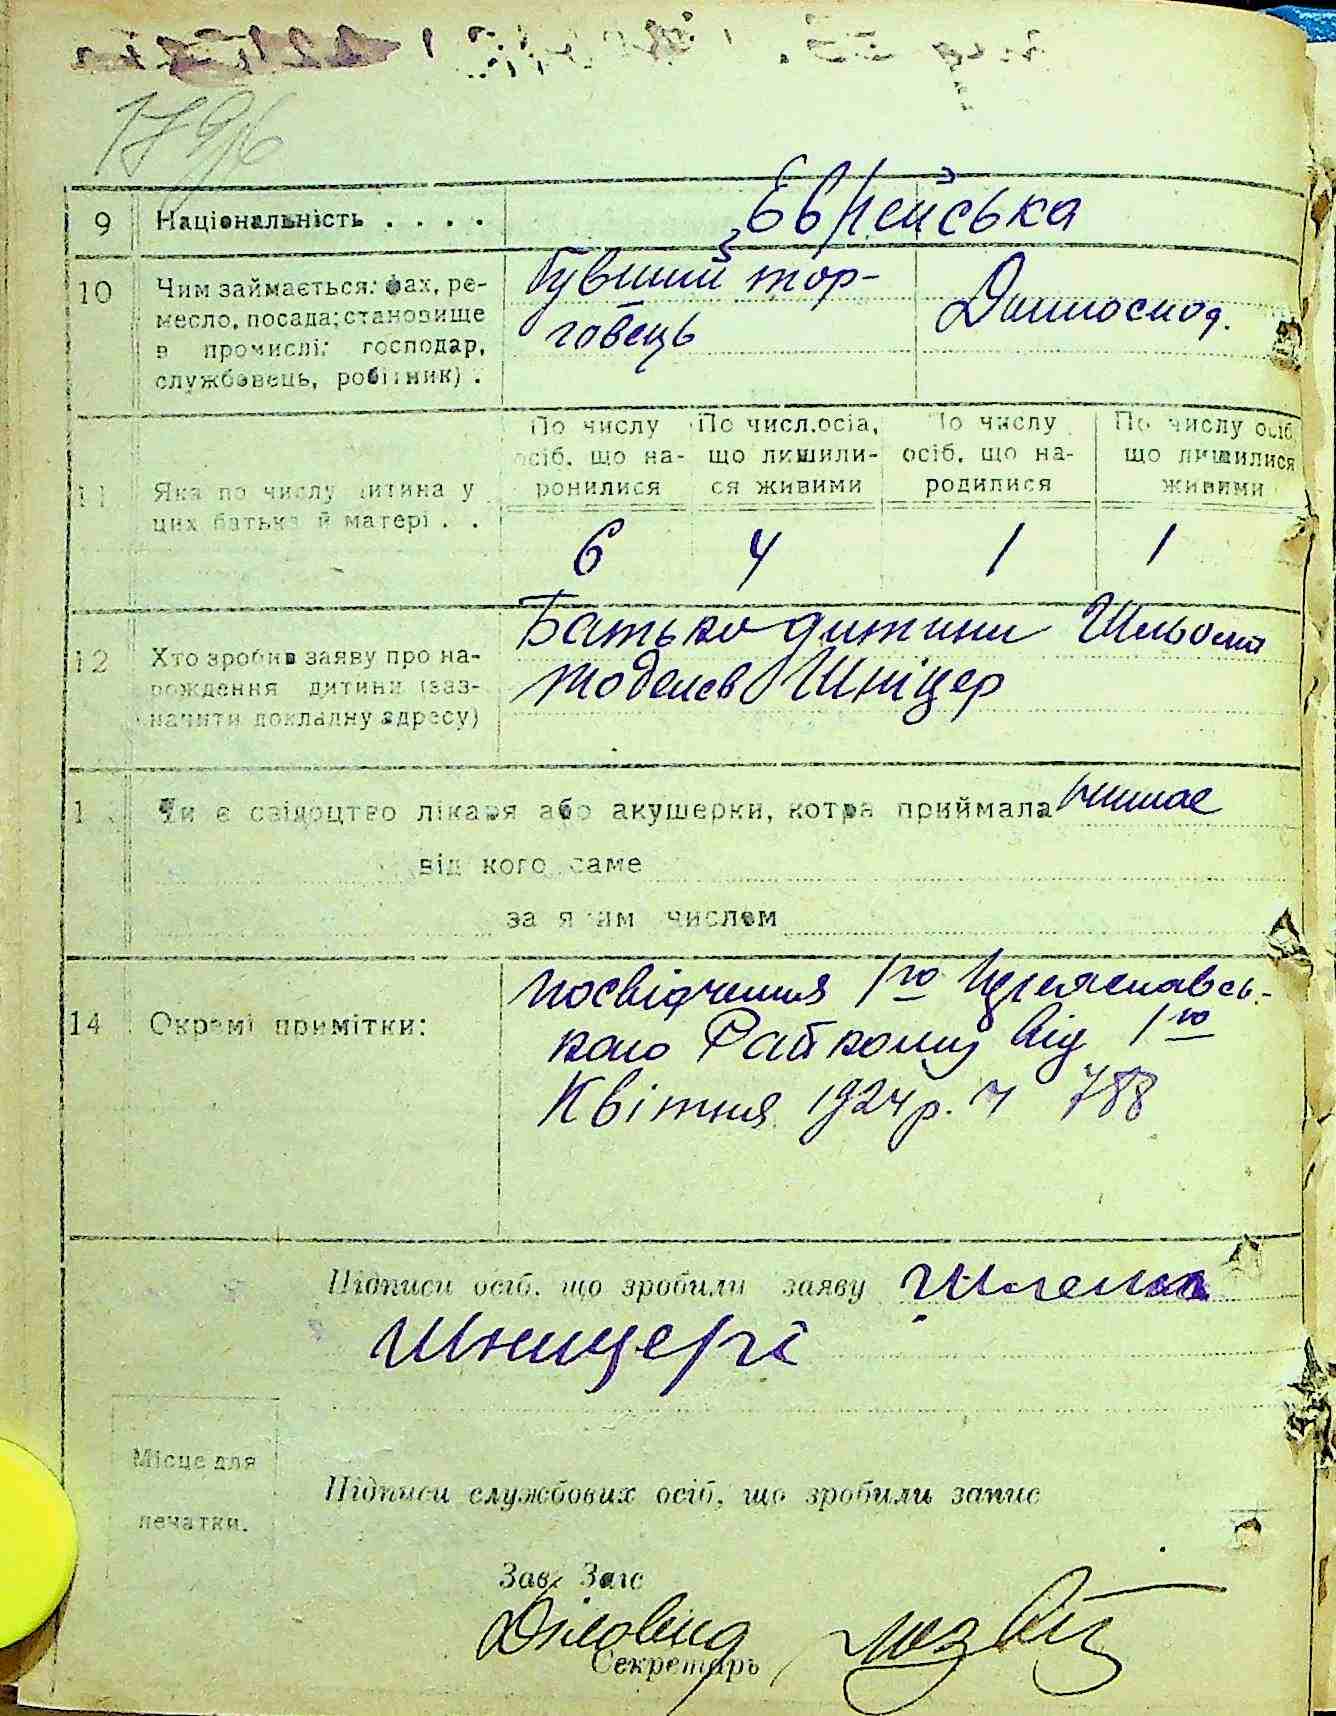 1796
9 Національність . . . .
Єврейська
10 Чим займається: фах, ре-
месло, посада; становище
в промислі: господар,
службовець, робітник) .
Бувший тор-
говець
Домоспод.
11 Яка по числу дитина у
цих батька й матері . .
По числу
осіб, що на-
ронилися
По числ.осіа,
що лишили-
ся живими
По числу
осіб, що на-
родилися
По числу осіб
що лишилися
живими
6 4 1 1
12 Хто зробив заяву про на-
рождення дитини (заз-
начити докладну адресу)
Батько дитини Шльома
Шніцер
1 Чи є свідоцтво лікаря або акушерки, котра приймала
немає
від кого саме
за яким числом
14 Окремі примітки:
посвідчення 1го Переяславсь-
кого Райкому від 1го
Квітня 1924 р. ч 788
Підписи осіб, що зробили заяву Шлема
Шницеръ
Місце для
печатки.
Підписи службових осіб, що зробили запис
Зав. Загс
Діловид
Секретарь